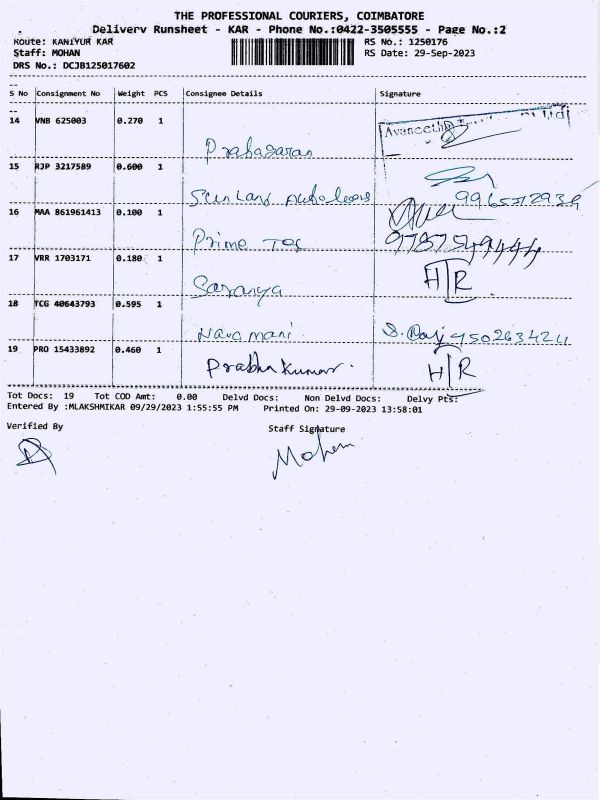 THE PROFESSIONAL COURIERS, COIMBATORE
Delivery Runsheet - KAR - Phone No.:0422-3505555 - Page No.:2
Route: KANIYUR KAR
RS No.: 1250176
Staff: MOHAN
RS Date: 29-Sep-2023
DRS No.: DCJB125017602
S No Consignment No Weight PCS Consignee Details Signature
14 VNB 625003 0.270 1
Prabagaran
15 RJP 3217589 0.600 1
Sun Land
16 MAA 861961413 0.100 1
Prime Tec
9787549444
17 VRR 1703171 0.180 1
Saranya
H/R
18 TCG 40643793 0.595 1
Navamani
S. 9502634211
19 PRO 15433892 0.460 1
Prabhu kumar.
H/R
Tot Docs: 19 Tot COD Amt: 0.00 Delvd Docs: Non Delvd Docs: Delvy Pts:
Entered By :MLAKSHMIKAR 09/29/2023 1:55:55 PM Printed On: 29-09-2023 13:58:01
Verified By Staff Signature
Mohan